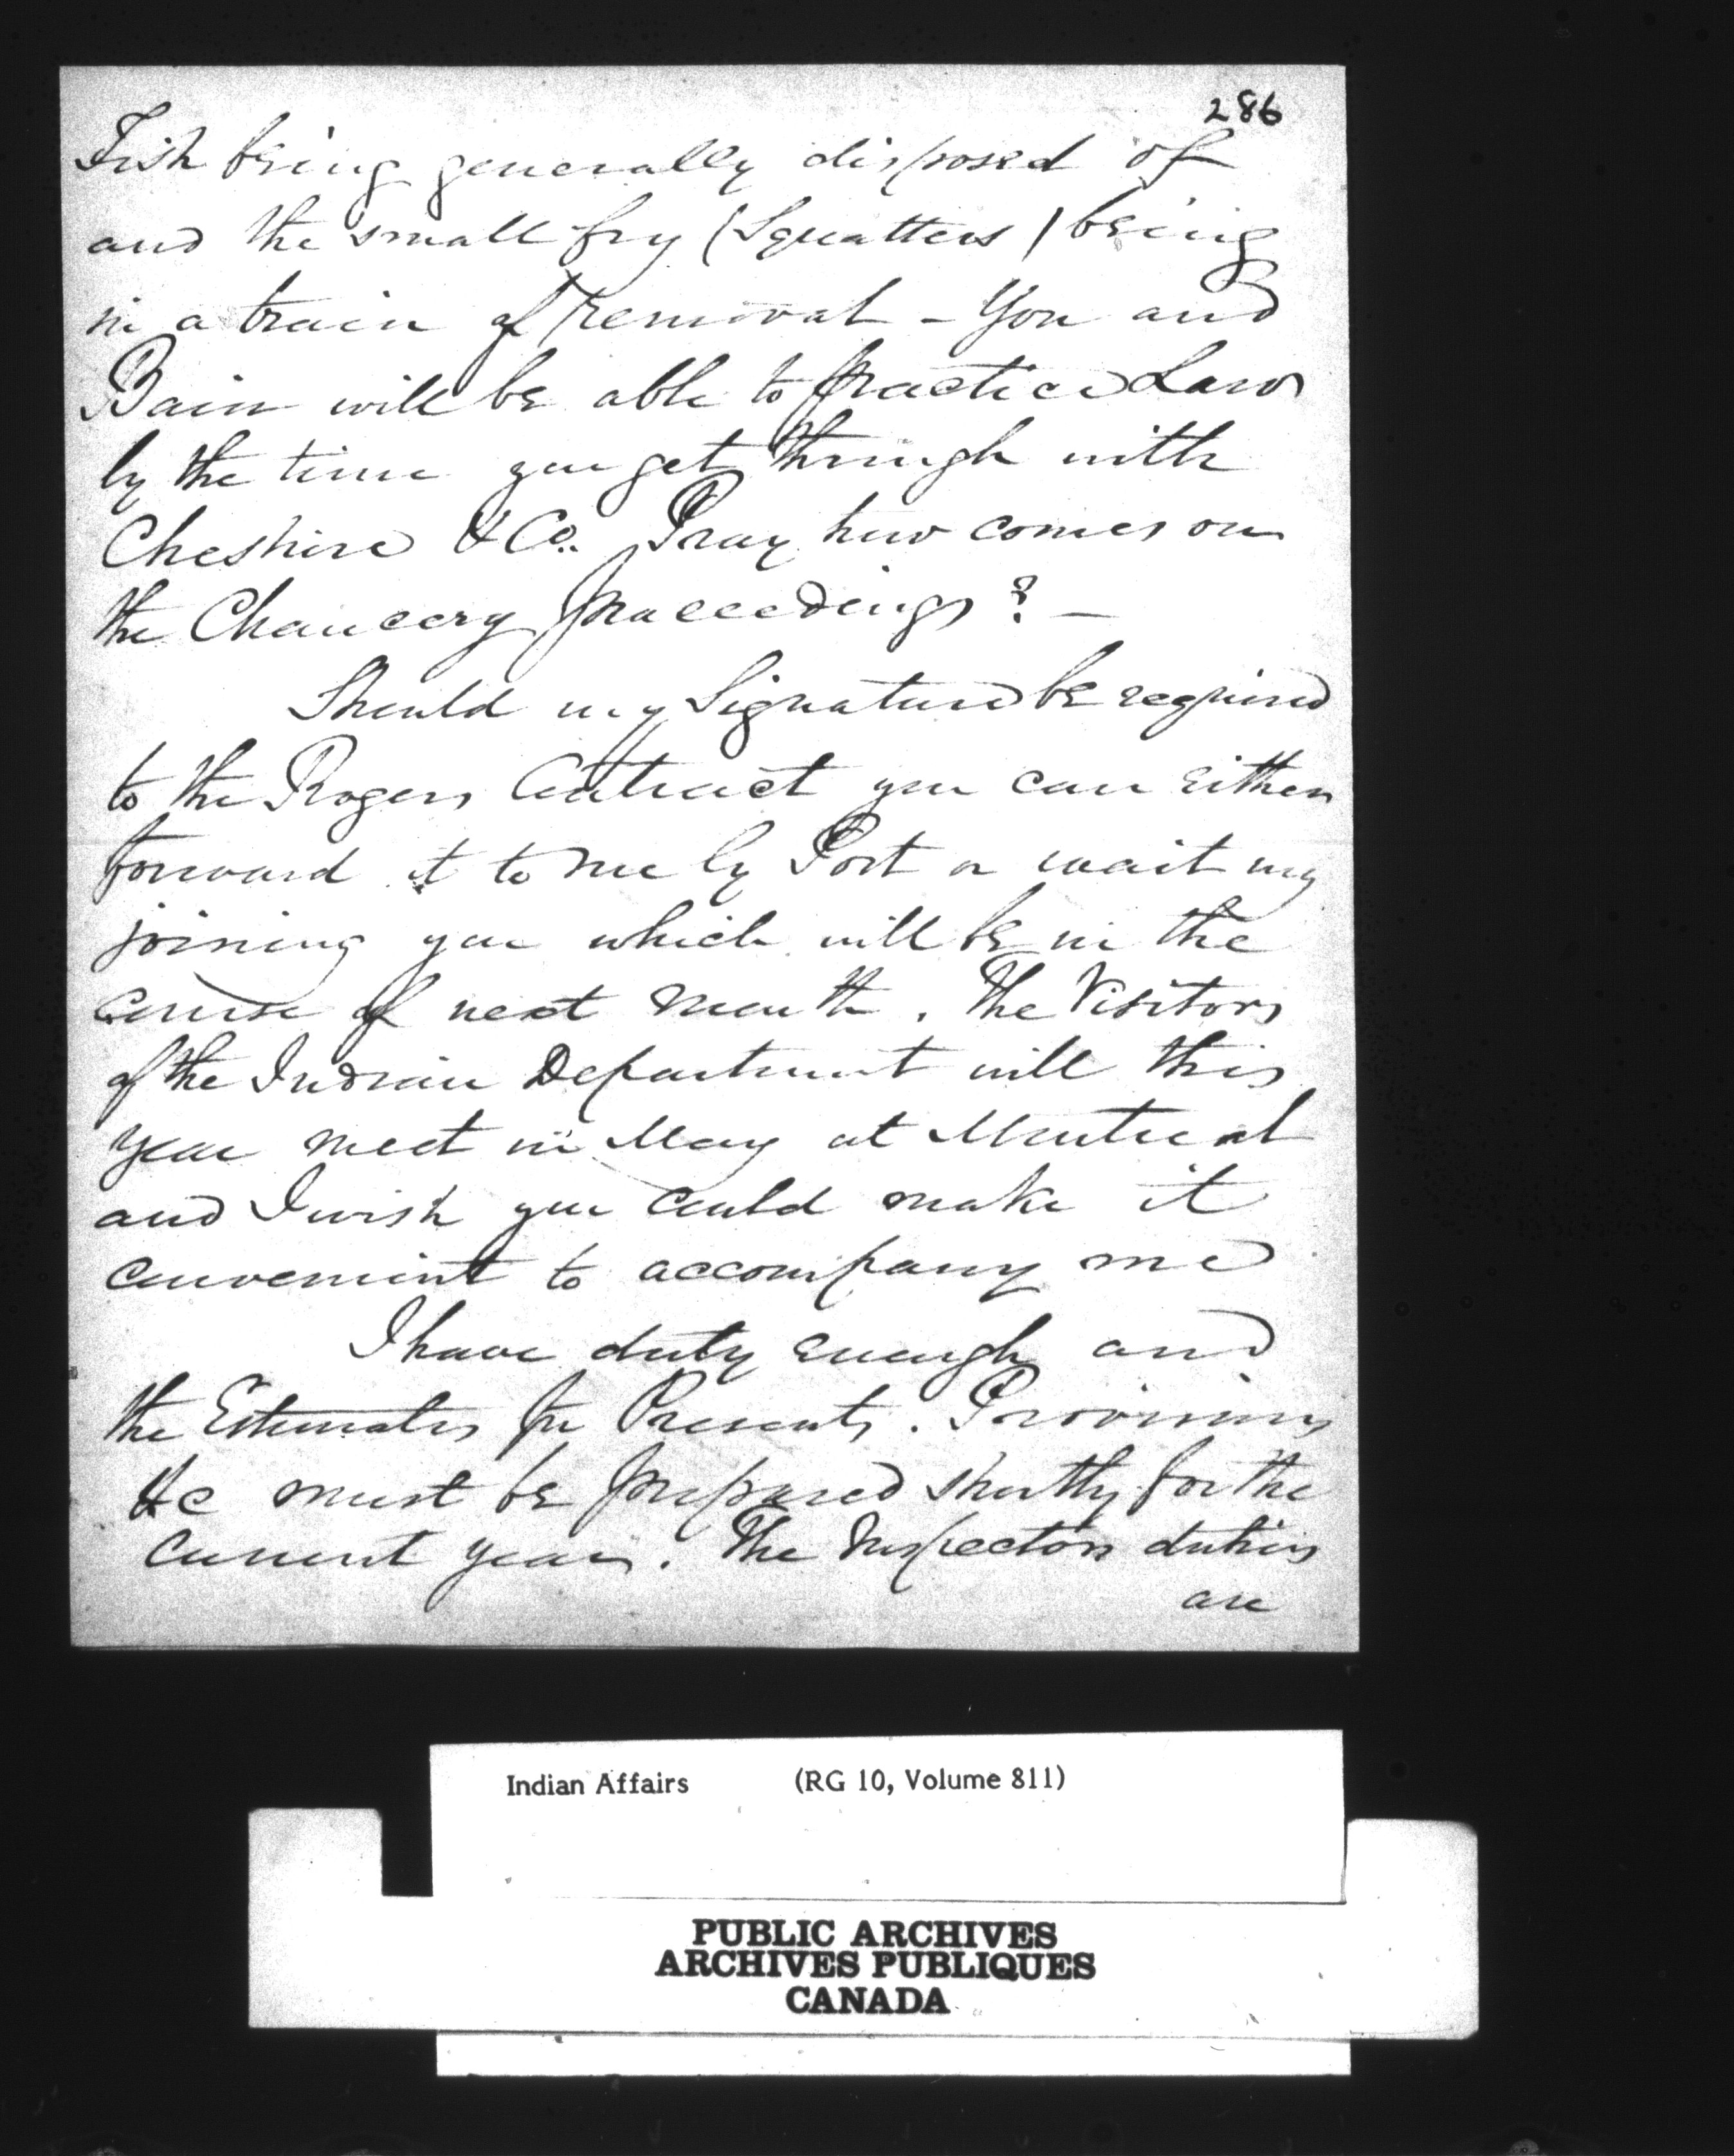 286
Fish being generally disposed of
and the small fry (Squatters) being
in a train of removal - You and
Bain will be able to practice Law
by the time you get through with
Cheshire & Co. Pray how comes on
the Chancery proceedings? -
Should my Signature be required
to the Rogers Contract you can either
forward it to me by Post or wait my
joining you which will be in the
course of next month. The Visitors
of the Indian Department will this
year meet in May at Montreal
and I wish you could make it
convenient to accompany me
I have duty enough and
the Estimates for Presents. Provisions
&c must be prepared shortly for the
current year. The Inspectors duties
are
Indian Affairs (RG 10, Volume 811)
PUBLIC ARCHIVES
ARCHIVES PUBLIQUES
CANADA